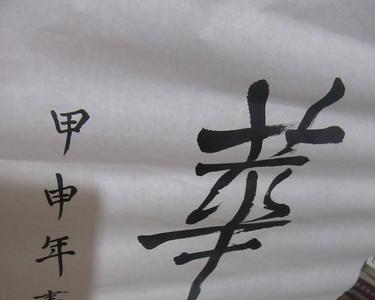 華
甲申年